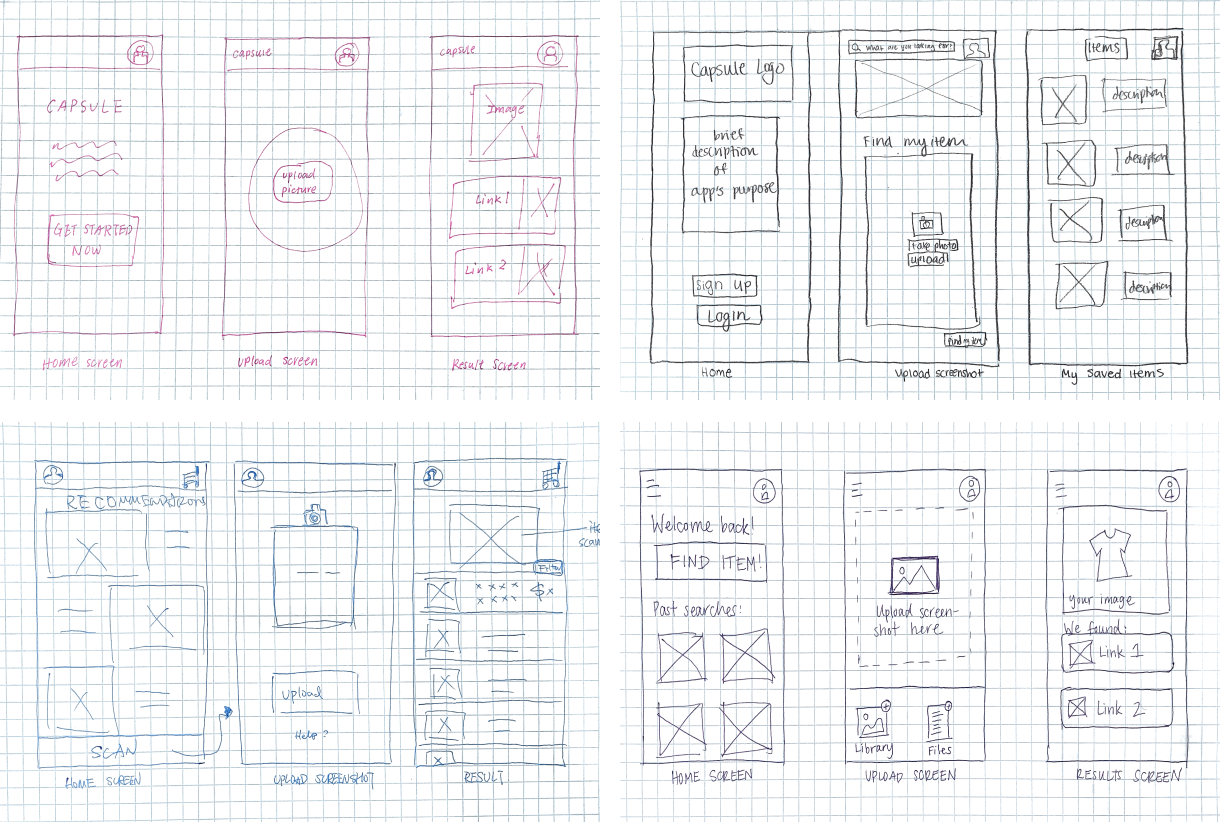 CAPSULE
GET STARTED
NOW
Home screen
capsule
upload
picture
Upload screen
capsule
Image
Link 1
Link 2
Result Screen
Capsule Logo
brief
description
of
app's purpose
Sign up
Login
Home
What are you looking for?
Find my item
take photo
upload
Find my item
Upload screenshot
Items
description
description
description
description
My Saved Items
RECOMMENDATIONS
SCAN
HOME SCREEN
Upload
Help?
UPLOAD SCREENSHOT
Filter
$x
RESULT
Welcome back!
FIND ITEM!
Past searches:
HOME SCREEN
Upload screen-
shot here
Library
Files
UPLOAD SCREEN
your image
We found:
Link 1
Link 2
RESULTS SCREEN